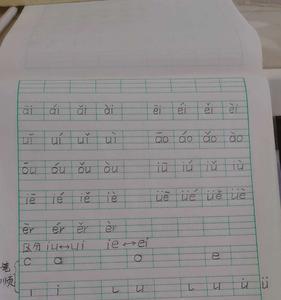 āi ái ǎi ài ēi éi ěi èi
uī uí uǐ uì āo áo ǎo ào
ōu óu ǒu òu iū iú iǔ iù
iē ié iě iè üē üé üě üè
ēr ér ěr èr
区分 iu↔ui ie↔ei
笔顺 c a o e
ı i ㇄ u ㇄ u u̇ ü